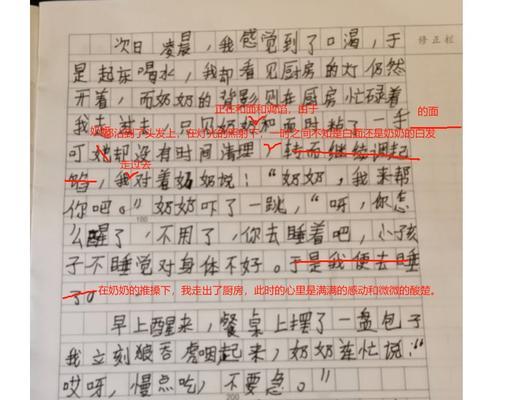 次日凌晨，我感觉到了口渴，于
修正栏
是起床喝水，我却看见厨房的灯仍然
开着，而奶奶的背影则在厨房忙碌着
正在和面和调馅，由于
的面
我走过去，只见奶奶和面时粘了一手
沾到了头发上，在灯光的照射下，一时之间不知是白面还是奶奶的白发
可她却没有时间清理，转而继续调起
走过去
馅，我对着奶奶说：“奶奶，我来帮
你吧。”奶奶吓了一跳，“呀，你怎
100
么醒了，不用了，你去睡着吧，小孩
子不睡觉对身体不好。于是我便去睡
了。
在奶奶的推搡下，我走出了厨房，此时的心里是满满的感动和微微的酸楚。
早上醒来，餐桌上摆了一盘包子
我立刻狼吞虎咽起来，奶奶连忙说：“
哎呀，慢点吃，不要急。”
200